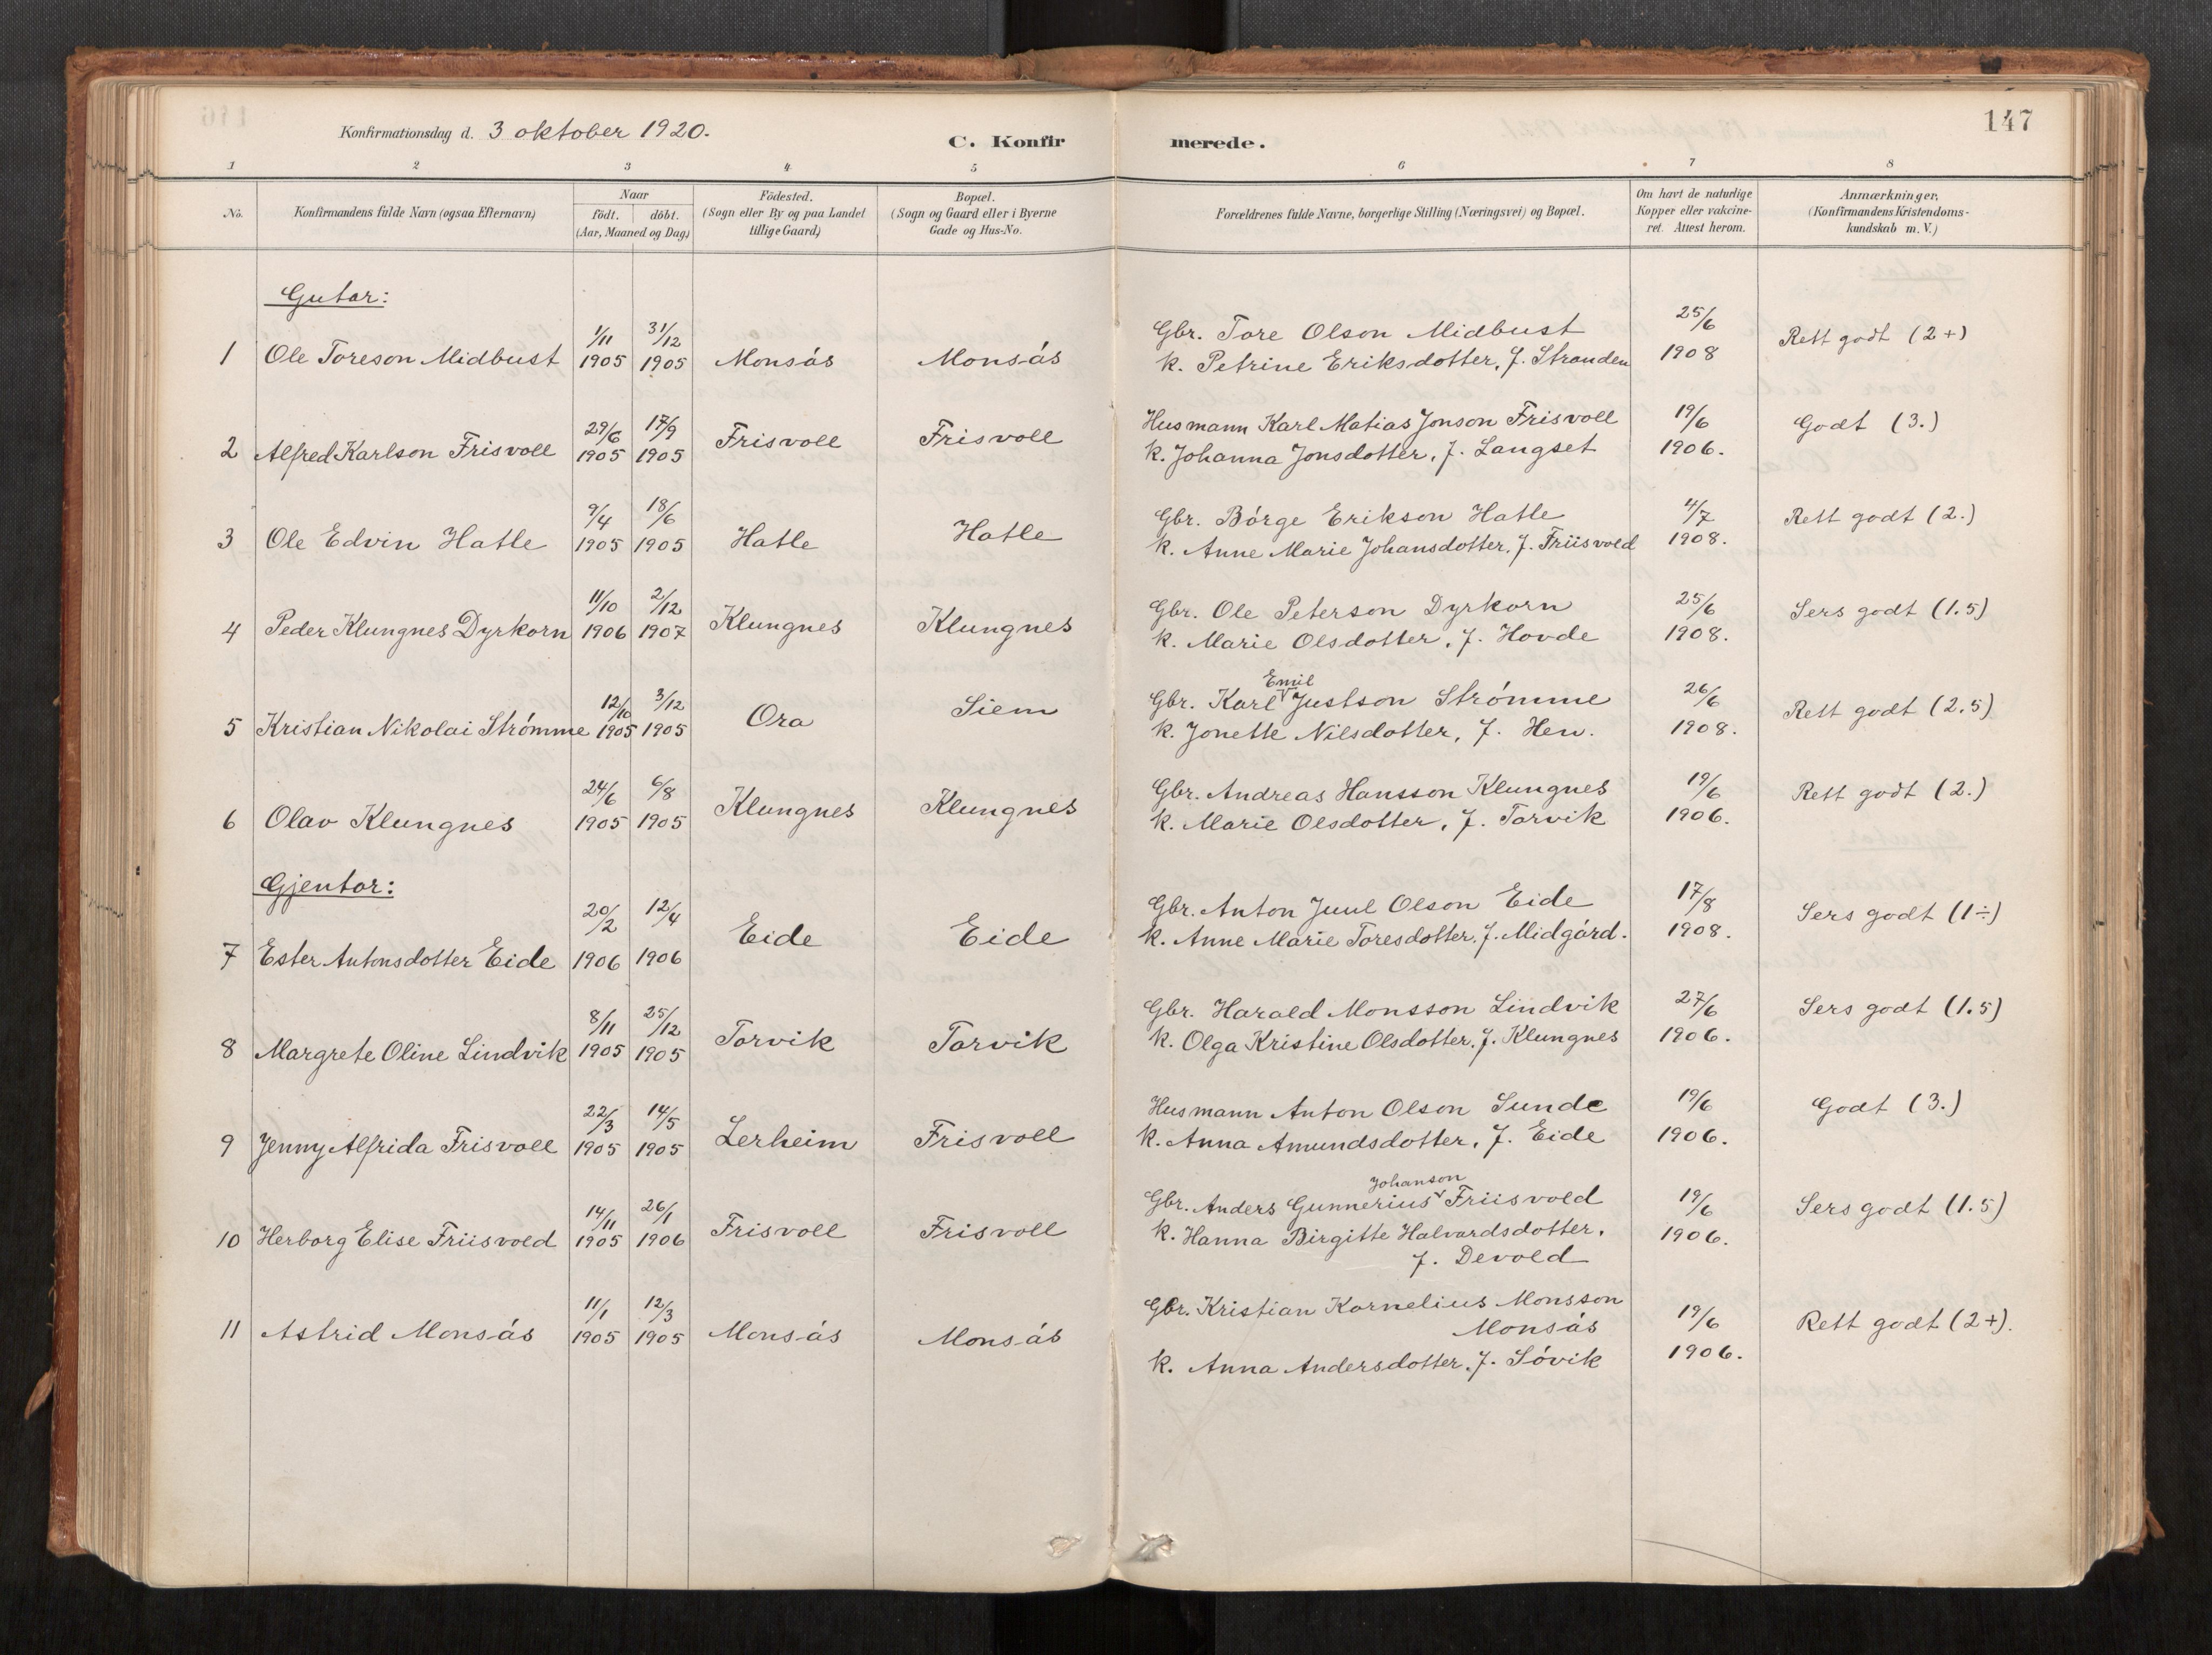 147
Konfirmationsdag d. 3 oktober 1920.
C. Konfirmerede.
1 2 3 4 5 6 7 8
No.
Konfirmandens fulde Navn (ogsaa Efternavn)
Naar
födt. döbt.
(Aar, Maaned og Dag)
Födested.
(Sogn eller By og paa Landet
tillige Gaard)
Bopæl.
(Sogn og Gaard eller i Byerne
Gade og Hus-No.
Forældrenes fulde Navne, borgerlige Stilling (Næringsvei) og Bopæl.
Om havt de naturlige
Kopper eller vakcine-
ret. Attest herom.
Anmærkninger,
(Konfirmandens Kristendoms-
kundskab m. V.)
Gutar:
1/11 31/12 Gbr. Tore Olson Midbust 25/6 Rett godt (2+)
1 Ole Toreson Midbust 1905 1905 Monsås Monsås k. Petrine Eriksdotter, f. Stranden 1908
29/6 17/9 Frisvoll Frisvoll Husmann Karl Matias Jonson Frisvoll 19/6 Godt (3.)
2 Alfred Karlson Frisvoll 1905 1905 k. Johanna Jonsdotter, f. Langset 1906.
9/4 18/6 Gbr. Børge Erikson Hatle 4/7 Rett godt (2.)
3 Ole Edvin Hatle 1905 1905 Hatle Hatle k. Anne Marie Johansdotter, f. Friisvold 1908.
11/10 2/12 Gbr. Ole Peterson Dyrkorn 25/6 Sers godt (1.5)
4 Peder Klungnes Dyrkorn 1906 1907 Klungnes Klungnes k. Marie Olsdotter, f. Hovde 1908.
Emil
12/10 3/12 Siem Gbr. Karl Justson Strømme 26/6 Rett godt (2.5)
5 Kristian Nikolai Strømme 1905 1905 Ora k. Jonette Nilsdotter, f. Hen. 1908.
24/6 6/8 Gbr. Andreas Hansson Klungnes 19/6 Rett godt (2.)
6 Olav Klungnes 1905 1905 Klungnes Klungnes k. Marie Olsdotter, f. Torvik 1906.
Gjentor:
20/2 12/4 Gbr. Anton Juul Olson Eide 17/8 Sers godt (1÷)
7 Ester Antonsdotter Eide 1906 1906 Eide Eide k. Anne Marie Toresdotter, f. Midgård. 1908.
8/11 25/12 Gbr. Harald Monsson Lindvik 27/6 Sers godt (1.5)
8 Margrete Oline Lindvik 1905 1905 Torvik Torvik k. Olga Kristine Olsdotter, f. Klungnes 1906.
22/3 14/5 Husmann Anton Olson Sunde 19/6 Godt (3.)
9 Jenny Alfrida Frisvoll 1905 1905 Lerheim Frisvoll k. Anna Amundsdotter, f. Eide 1906.
Johanson
14/11 26/1 Gbr. Anders Gunnerius Friisvold 19/6 Sers godt (1.5)
10 Herborg Elise Friisvold 1905 1906 Frisvoll Frisvoll k. Hanna Birgitte Halvardsdotter, 1906.
f. Devold
11/1 12/3 Gbr. Kristian Kornelius Monsson 19/6 Rett godt (2+).
11 Astrid Monsås 1905 1905 Monsås Monsås Monsås
k. Anna Andersdotter, f. Søvik 1906.